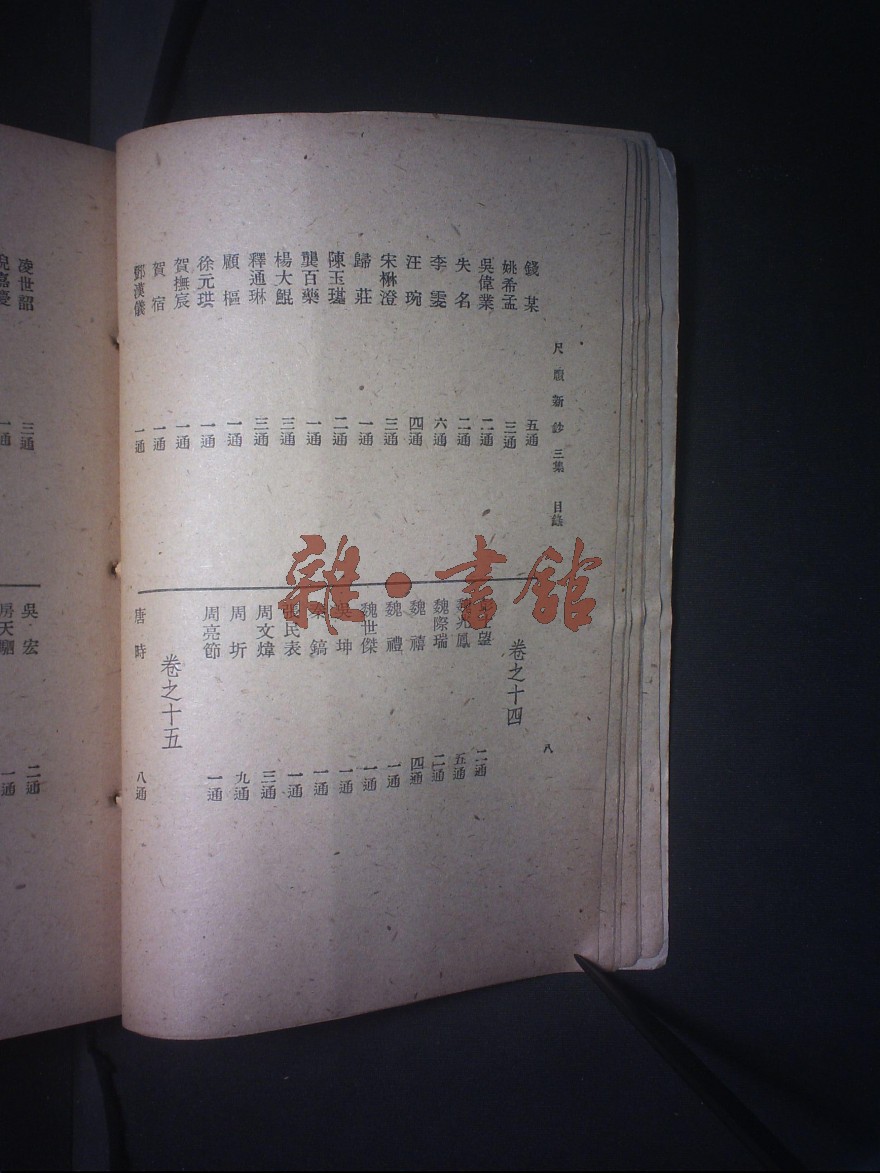 尺牘新鈔三集 目錄
八
錢某 五通
姚希孟 三通
吳偉業 二通
失名 二通
李雯 六通
汪琬 四通
宋楙澄 三通
歸莊 一通
陳玉璂 二通
龔百藥 一通
楊大鯤 三通
釋通琳 三通
顧樞 一通
徐元珙 一通
賀撫宸 一通
賀宿 一通
鄧漢儀 一通
卷之十四
望 二通
魏兆鳳 五通
魏際瑞 二通
魏禧 四通
魏禮 一通
魏世傑 一通
吳坤 一通
秦鎬 一通
張民表 一通
周文煒 三通
周圻 九通
周亮節 一通
卷之十五
唐時 八通
凌世韶 三通
倪嘉慶 一通
吳宏 二通
一通
雜·書館